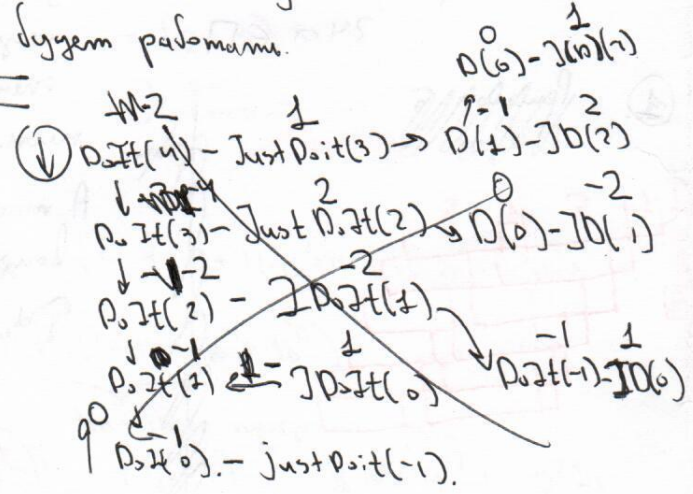 будет работать.
0 1
D(0)-J(D)(-1)
-2 1 -1 2
DoIt(4) - JustDoit(3) → D(1)-JD(2)
2 0 -2
DoIt(3) - JustDoIt(2) D(0)-JD(1)
-2 -2
DoIt(2) - JDoIt(1)
-1 1 -1 1
DoIt(1) - JDoIt(0) DoIt(-1)-JD(0)
0 -1
DoIt(0). - justDoit(-1).